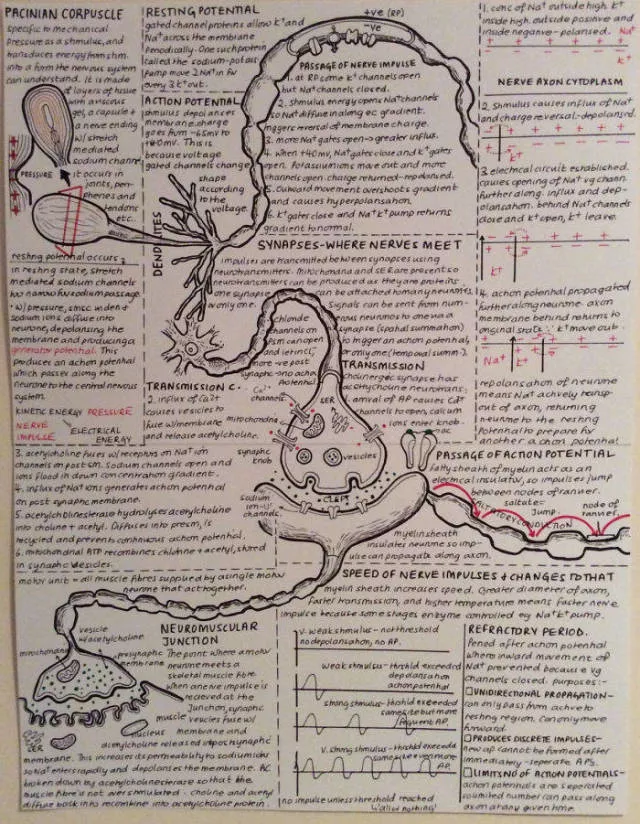 PACINIAN CORPUSCLE
specific to mechanical
pressure as a stimulus, and
transduces energy from stim.
into a form the nervous system
can understand. It is made
of layers of tissue
with a viscous
gel, a capsule +
a nerve ending
w/ stretch
mediated
sodium channel
PRESSURE
it occurs in
joints,
tendons
etc..
axon
resting potential occurs
in resting state, stretch
mediated sodium channels
too narrow for sodium passage.
w/ pressure, widen +
sodium ions diffuse into
neurone, depolarising the
membrane and producing a
generator potential. This
produces an action potential
which passes along the
neurone to the central nervous
system.
KINETIC ENERGY PRESSURE
NERVE IMPULSE ELECTRICAL ENERGY
RESTING POTENTIAL
gated channel proteins allow K+ and
Na+ across the membrane
periodically. One such protein
called the sodium-pot
pump move 2 Na+ in for
every 3 K+ out.
ACTION POTENTIAL
stimulus depolarises
membrane, charge
goes from -65mV to
+40mV. This is
because voltage
gated channels change
shape
according
to the
voltage.
DENDRITES
+ve (RP)
-ve
PASSAGE OF NERVE IMPULSE
1. at RP some K+ channels open
but Na+ channels closed.
2. Stimulus energy opens Na+ channels
so Na+ diffuse in along ec gradient.
triggers reversal of membrane charge.
3. more Na+ gates open → greater influx.
4. When +40mV, Na+ gates close and K+ gates
open. Potassium ions move out and more
channels open. charge returned - repolarised.
5. Outward movement overshoots gradient
and causes hyperpolarisation.
6. K+ gates close and Na+ K+ pump returns
gradient to normal.
1. conc of Na+ outside high. K+
inside high. outside positive and
inside negative - polarised. Na+
K+
NERVE AXON CYTOPLASM
2. Stimulus causes influx of Na+
and charge reversal - depolarised.
K+
3. electrical circuit established.
causes opening of Na+ vg chan.
further along. influx and dep-
olarisation. behind Na+ channels
close and K+ open, K+ leave.
K+
4. action potential propagated
further along neurone. axon
membrane behind returns to
original state ∵ K+ move out.
Na+ K+
repolarisation of neurone
means Na+ actively transp-
out of axon, returning
neurone to the resting
potential to prepare for
another action potential
SYNAPSES - WHERE NERVES MEET
impulses are transmitted between synapses using
neurotransmitters. Mitochondria and SER are present so
neurotransmitters can be produced as they are proteins.
one synapse can be attached to many neurones,
or only one.
Signals can be sent from num-
erous neurones to one via a
synapse (spatial summation)
to trigger an action potential,
or only one (temporal summ.).
chloride
channels on
psm can open
and let in Cl-,
more -ve post
synaptic - no action
potential
TRANSMISSION
cholinergic synapse has
acetylcholine neurotrans:
1. arrival of AP causes Ca2+
channels to open, calcium
ions enter knob.
TRANSMISSION C.
2. influx of Ca2+
causes vesicles to
fuse w/ membrane
and release acetylcholine.
Ca2+
channels
mitochondria
SER
synaptic
knob
vesicles
CLEFT
sodium
ion
channels
3. acetylcholine fuses w/ receptors on Na+ ion
channels on postsm. Sodium channels open and
ions flood in down concentration gradient.
4. influx of Na+ ions generates action potential
on post synaptic membrane.
5. acetylcholinesterase hydrolyses acetylcholine
into choline + acetyl. Diffuses into presm, is
recycled and prevents continuous action potential.
6. mitochondrial ATP recombines choline + acetyl, stored
in synaptic vesicles.
PASSAGE OF ACTION POTENTIAL
fatty sheath of myelin acts as an
electrical insulator, so impulses jump
between nodes of ranvier.
jump
node of
ranvier
SALTATORY CONDUCTION
myelin sheath
insulates neurone so imp-
ulse can propagate along axon.
motor unit - all muscle fibres supplied by a single motor
neurone that act together.
SPEED OF NERVE IMPULSES + CHANGES TO THAT
myelin sheath increases speed. Greater diameter of axon,
faster transmission, and higher temperature means faster nerve
impulse because some stages enzyme controlled eg Na+ K+ pump.
NEUROMUSCULAR
JUNCTION
The point where a motor
neurone meets a
skeletal muscle fibre.
when a nerve impulse is
recieved at the
junction, synaptic
vesicles fuse w/
membrane and
acetylcholine released into postsynaptic
membrane. This increases its permeability to sodium ions
so Na+ enters rapidly and depolarises the membrane. AC
broken down by acetylcholinesterase so that the
muscle fibre is not overstimulated - choline and acetyl
diffuse back into recombine into acetylcholine protein.
vesicle
w/ acetylcholine
mitochondria
presynaptic
membrane
muscle
nucleus
SER
V. weak stimulus - no threshold
no depolarisation, no AP.
weak stimulus - threshld exceeded
depolarisation
action potential
strong stimulus - threshld exceeded
same size but more
frequent AP.
V. strong stimulus - threshld exceeded
same size even more
AP.
no impulse unless threshold reached
'all or nothing'
REFRACTORY PERIOD.
Period after action potential
where inward movement of
Na+ prevented because vg
channels closed. purposes:-
UNIDIRECTIONAL PROPAGATION -
can only pass from active to
resting region. Can only move
forward.
PRODUCES DISCRETE IMPULSES -
new ap cannot be formed after
immediately - seperate APs.
LIMITS NO OF ACTION POTENTIALS -
action potentials are seperated
so limited number can pass along
axon at any given time.